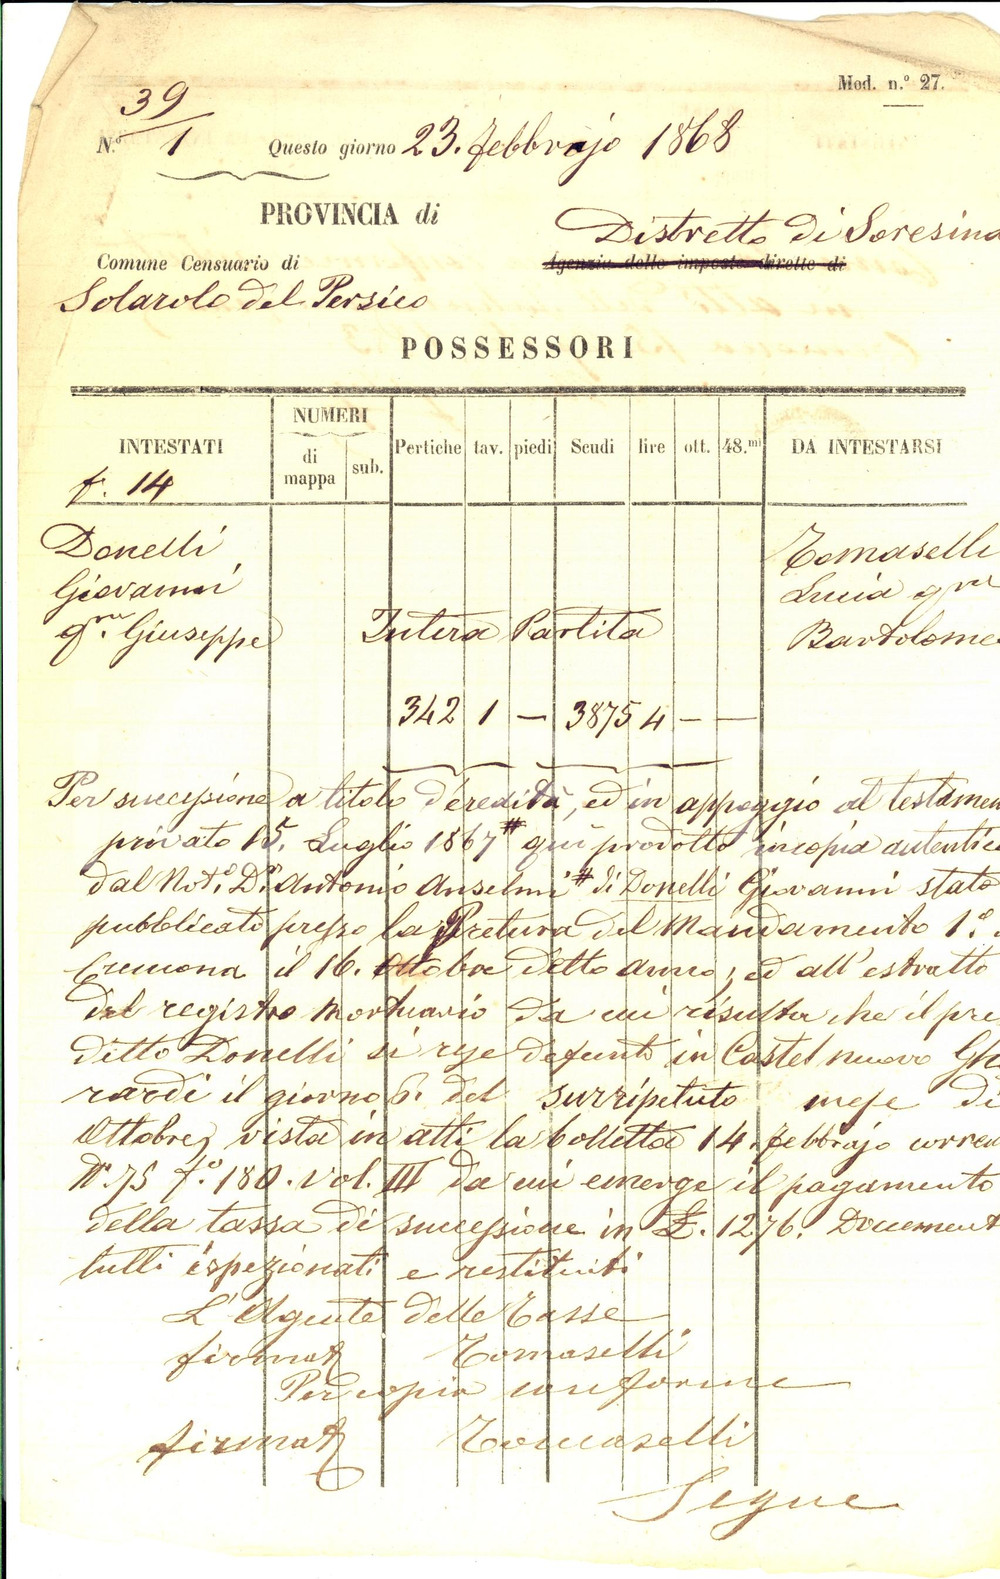 Mod. n.º 27.
39/1
N.º Questo giorno 23. febbrajo 1868
PROVINCIA di
Distretto di Soresina
Comune Censuario di Agenzia delle imposte dirette di
Solarolo del Persico
POSSESSORI
INTESTATI NUMERI di mappa sub. Pertiche tav. piedi Scudi lire ott. 48.mi DA INTESTARSI
f. 14
Donelli Tomaselli
Giovanni Lucia qm
qm. Giuseppe Intera Partita Bartolome
342 1 — 3875 4 — —
Per successione a titolo d'eredità, ed in appoggio al testamen
privato 15. Luglio 1867 # qui prodotto in copia autentica
dal Not.º D.r Antonio Anselmi # di Donelli Giovanni stato
pubblicato presso la Pretura del Mandamento 1.º
Cremona il 16. Ottobre detto anno, ed all'estratto
del registro mortuario da cui risulta che il pre
ditto Donelli si rese defunto in Castelnuovo Ghe
rardi il giorno 6. del surripetuto mese di
Ottobre, vista in atti la bolletta 14. febbrajo corren
N. 75 f.º 180. vol. III da cui emerge il pagamento
della tassa di successione in £. 1276. Document
tutti ispezionati e restituiti
L'Agente delle Tasse
firmat Tomaselli
Per copia conforme
firmat Tomaselli
Segue